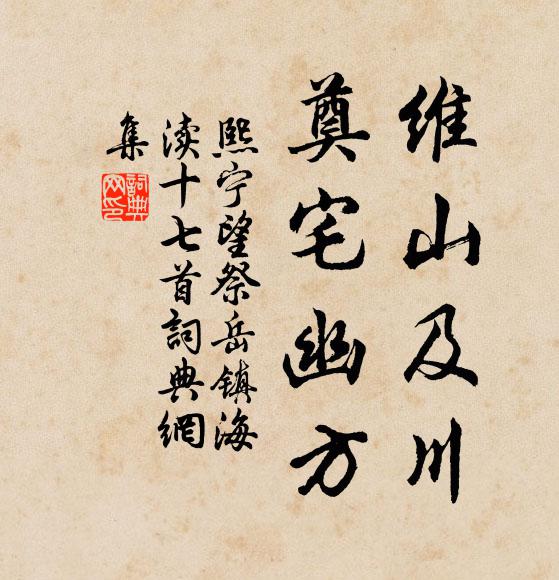 维山及川
奠宅幽方
熙宁望祭岳镇海
渎十七首詞典網
集
詞典網印